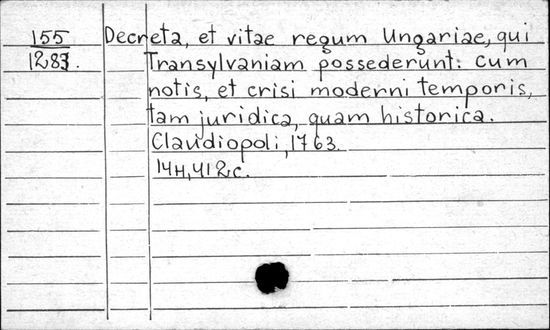 155 Decreta, et vitae regum Ungariae, qui
1283. Transylvaniam possederunt: cum
notis, et crisi moderni temporis,
tam juridica, quam historica.
Claudiopoli, 1763.
14H, 412c.